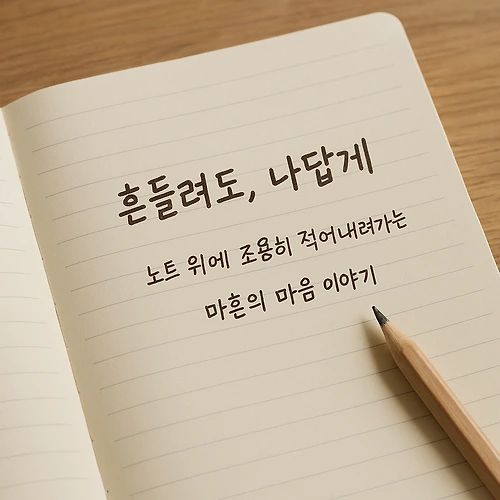 흔들려도, 나답게
노트 위에 조용히 적어내려가는
마흔의 마음 이야기